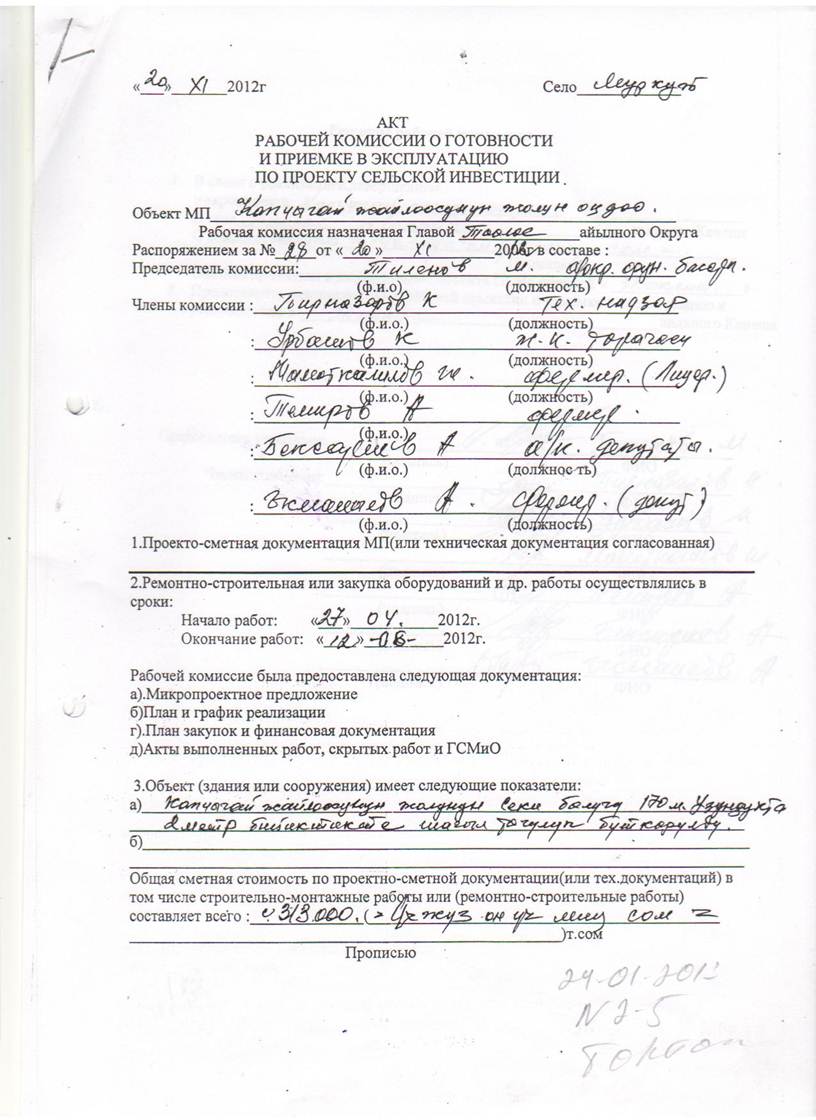 «20» XI 2012г Село Муркут
АКТ
РАБОЧЕЙ КОМИССИИ О ГОТОВНОСТИ
И ПРИЕМКЕ В ЭКСПЛУАТАЦИЮ
ПО ПРОЕКТУ СЕЛЬСКОЙ ИНВЕСТИЦИИ
Объект МП Капчыгай жайлоосунун жолун оңдоо.
Рабочая комиссия назначеная Главой айылного Округа
Распоряжением за № 28 от «20» XI в составе :
Председатель комиссии: Тиленов М.
(ф.и.о) (должность)
Члены комиссии : Пирназаров К Тех. надзор
(ф.и.о.) (должность)
: К Ж.К. төрагасы
(ф.и.о.) (должность)
: фермер. (Лидер.)
(ф.и.о.) (должность)
: Темиров А фермер.
(ф.и.о.)
: А а/к. депутаты.
(ф.и.о.) (должнос ть)
: А. фермер. (депут)
(ф.и.о.) (должность)
1.Проекто-сметная документация МП(или техническая документация согласованная)
2.Ремонтно-строительная или закупка оборудований и др. работы осуществлялись в
сроки:
Начало работ: «27» 04. 2012г.
Окончание работ: «12» -08- 2012г.
Рабочей комиссие была предоставлена следующая документация:
а).Микропроектное предложение
б)План и график реализации
г).План закупок и финансовая документация
д)Акты выполненных работ, скрытых работ и ГСМиО
3.Объект (здания или сооружения) имеет следующие показатели:
а) Капчыгай жайлоосунун жолунун секи болучу 170 м. Узундукта
2 метр бийиктикте шагыл төгүлүп бүткөрүлдү.
б)
Общая сметная стоимость по проектно-сметной документации(или тех.документаций) в
том числе строительно-монтажные работы или (ремонтно-строительные работы)
составляет всего : 313.000. ( Үч жүз он үч миң сом
)т.сом
Прописью
24-01-2013
N 2-5